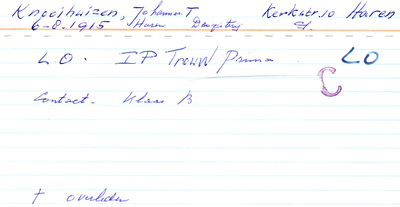 Knooihuizen, Johannes T Kerkstr. 10 Haren
6-8-1915 Haren
L.O. IP Trouw Prima LO
C
Contact. Klaas B
† overleden